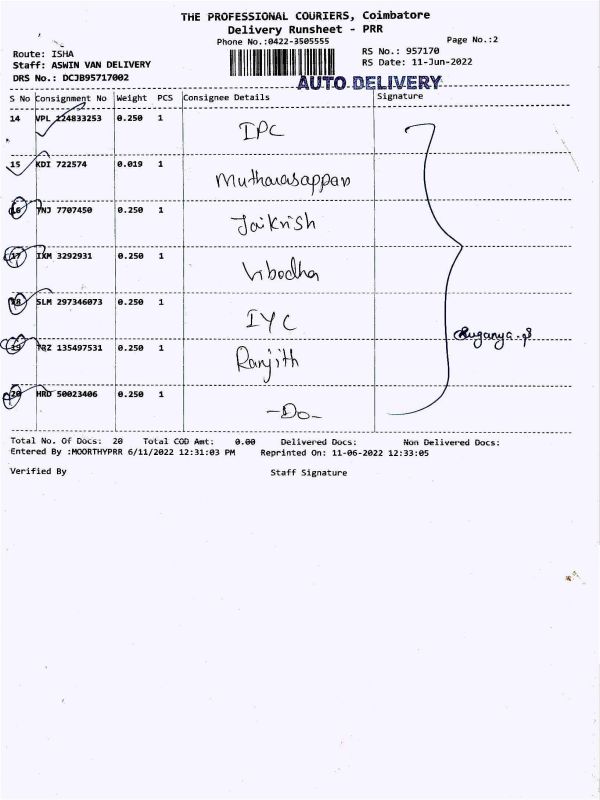 THE PROFESSIONAL COURIERS, Coimbatore
Delivery Runsheet - PRR
Phone No.:0422-3505555 Page No.:2
Route: ISHA RS No.: 957170
Staff: ASWIN VAN DELIVERY RS Date: 11-Jun-2022
DRS No.: DCJB95717002
AUTO DELIVERY
S No Consignment No Weight PCS Consignee Details Signature
14 VPL 124833253 0.250 1
IPC
15 KDI 722574 0.019 1
Mutharasappan
16 TNJ 7707450 0.250 1
Jaikrish
17 IXM 3292931 0.250 1
Vibodha
18 SLM 297346073 0.250 1
IYC
Suganya.S
19 TRZ 135497531 0.250 1
Ranjith
20 HRD 50023406 0.250 1
-Do-
Total No. Of Docs: 20 Total COD Amt: 0.00 Delivered Docs: Non Delivered Docs:
Entered By :MOORTHYPRR 6/11/2022 12:31:03 PM Reprinted On: 11-06-2022 12:33:05
Verified By Staff Signature